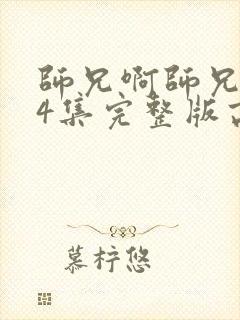 師兄啊師兄
4集完整版
慕梓悠